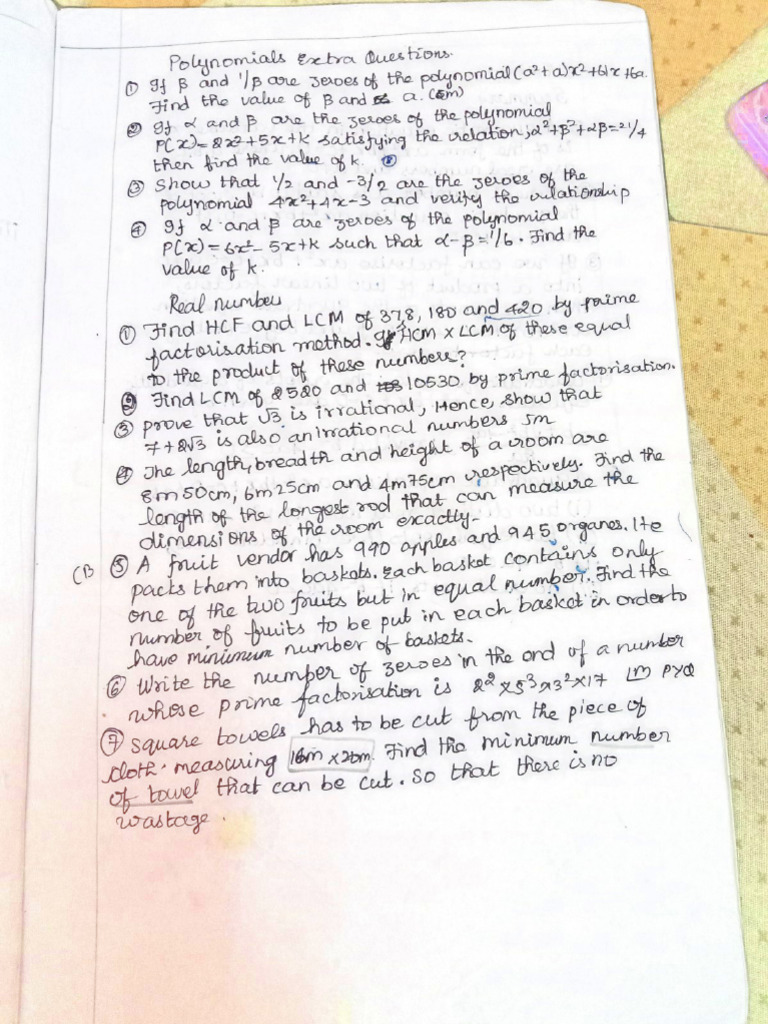 Polynomials Extra Questions.
① If β and 1/β are zeroes of the polynomial (a²+a)x²+61x+6a.
Find the value of β and a. (5m)
② If α and β are the zeroes of the polynomial
P(x)=2x²+5x+k satisfying the relation, α²+β²+αβ=21/4
then find the value of k.
③ Show that 1/2 and -3/2 are the zeroes of the
polynomial 4x²+4x-3 and verify the relationship
④ If α and β are zeroes of the polynomial
P(x)=6x²-5x+k such that α-β=1/6. Find the
value of k.
Real number
① Find HCF and LCM of 378, 180 and 420 by prime
factorisation method. If HCM x LCM of these equal
to the product of these numbers?
② Find LCM of 2520 and 10530 by prime factorisation.
③ prove that √3 is irrational, Hence, show that
7+2√3 is also an irrational numbers 5m
④ The length, breadth and height of a room are
8m 50cm, 6m 25cm and 4m 75cm respectively. Find the
length of the longest rod that can measure the
dimensions of the room exactly.
CB ⑤ A fruit vendor has 990 apples and 945 organes. He
packs them into baskets. Each basket contains only
one of the two fruits but in equal number. Find the
number of fruits to be put in each basket in order to
have minimum number of baskets.
⑥ Write the number of zeroes in the end of a number
whose prime factorisation is 2²x5³x3²x17 1M PYQ
⑦ Square towels has to be cut from the piece of
cloth measuring 16m x 20m. Find the minimum number
of towel that can be cut. So that there is no
wastage.